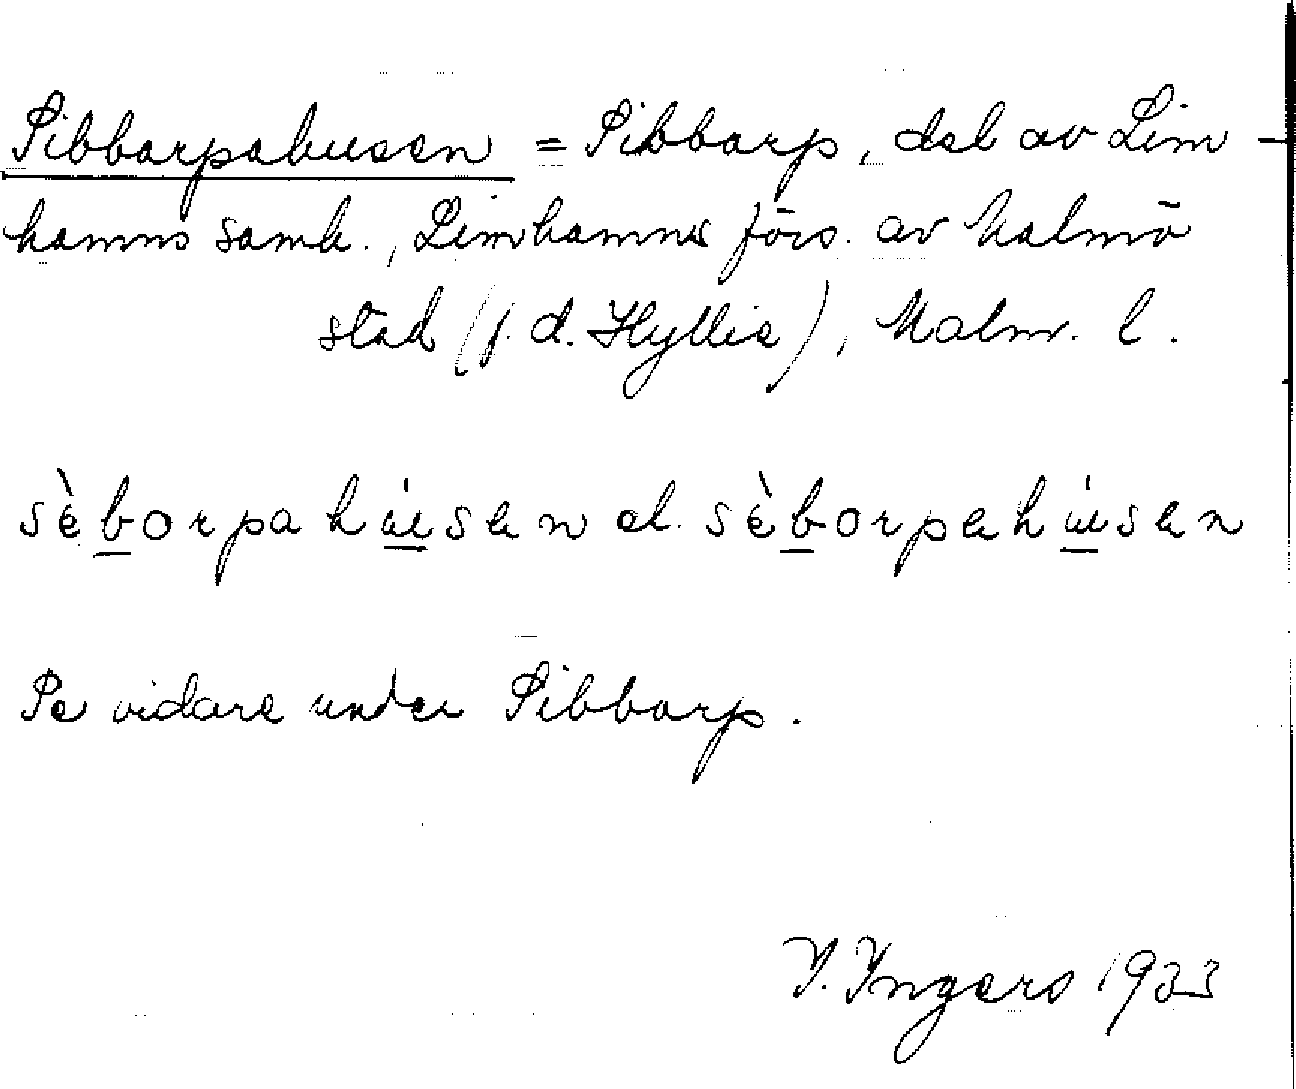 Sibbarpahusen = Sibbarp, del av Lim-
hamns samh., Limhamns förs. av Malmö
stad (f. d. Hyllie), Malm. l.
sèborpahúsen el. sèborpehúsen
Se vidare under Sibbarp.
I. Ingers 1933